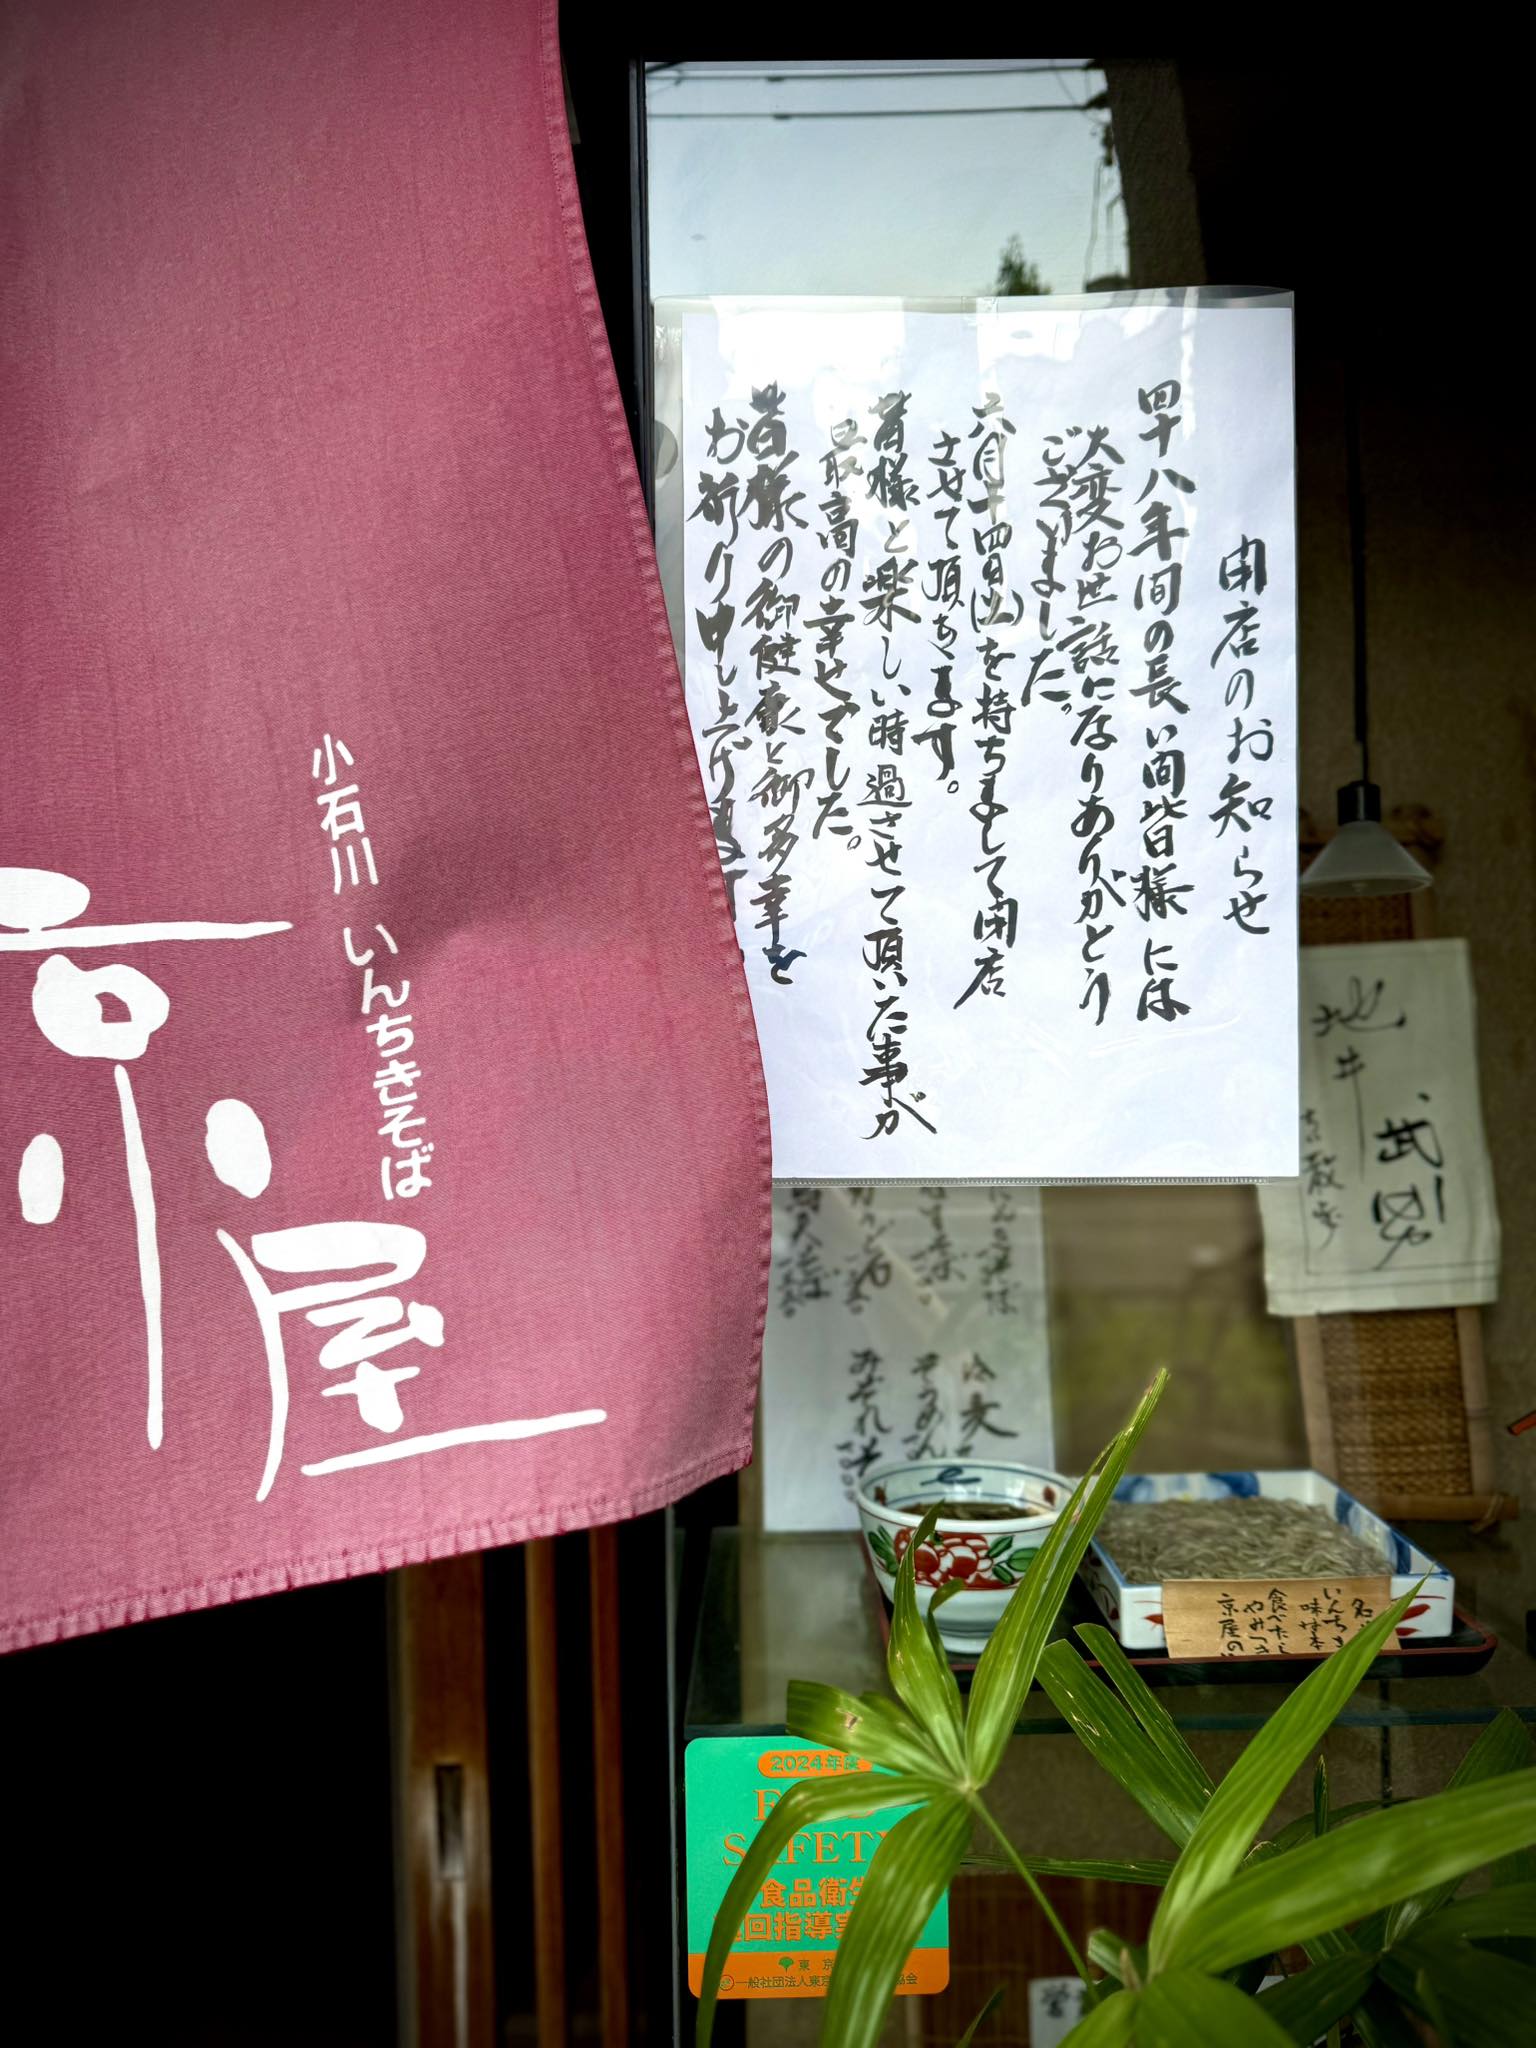 閉店のお知らせ
四十八年間の長い間皆様には
大変お世話になりありがとう
ございました。
六月十四日(土)を持ちまして閉店
させて頂きます。
皆様と楽しい時過させて頂いた事が
最高の幸せでした。
皆様の御健康と御多幸を
お祈り申し上げます
小石川 いんちきそば
京屋
地井
武男
冷麦
そうめん
みぞれ
いんちき
味は本
食べたら
やみつき
京屋の
2024年度
SAFETY
食品衛生
回指導実
東京
一般社団法人東京
協会
営